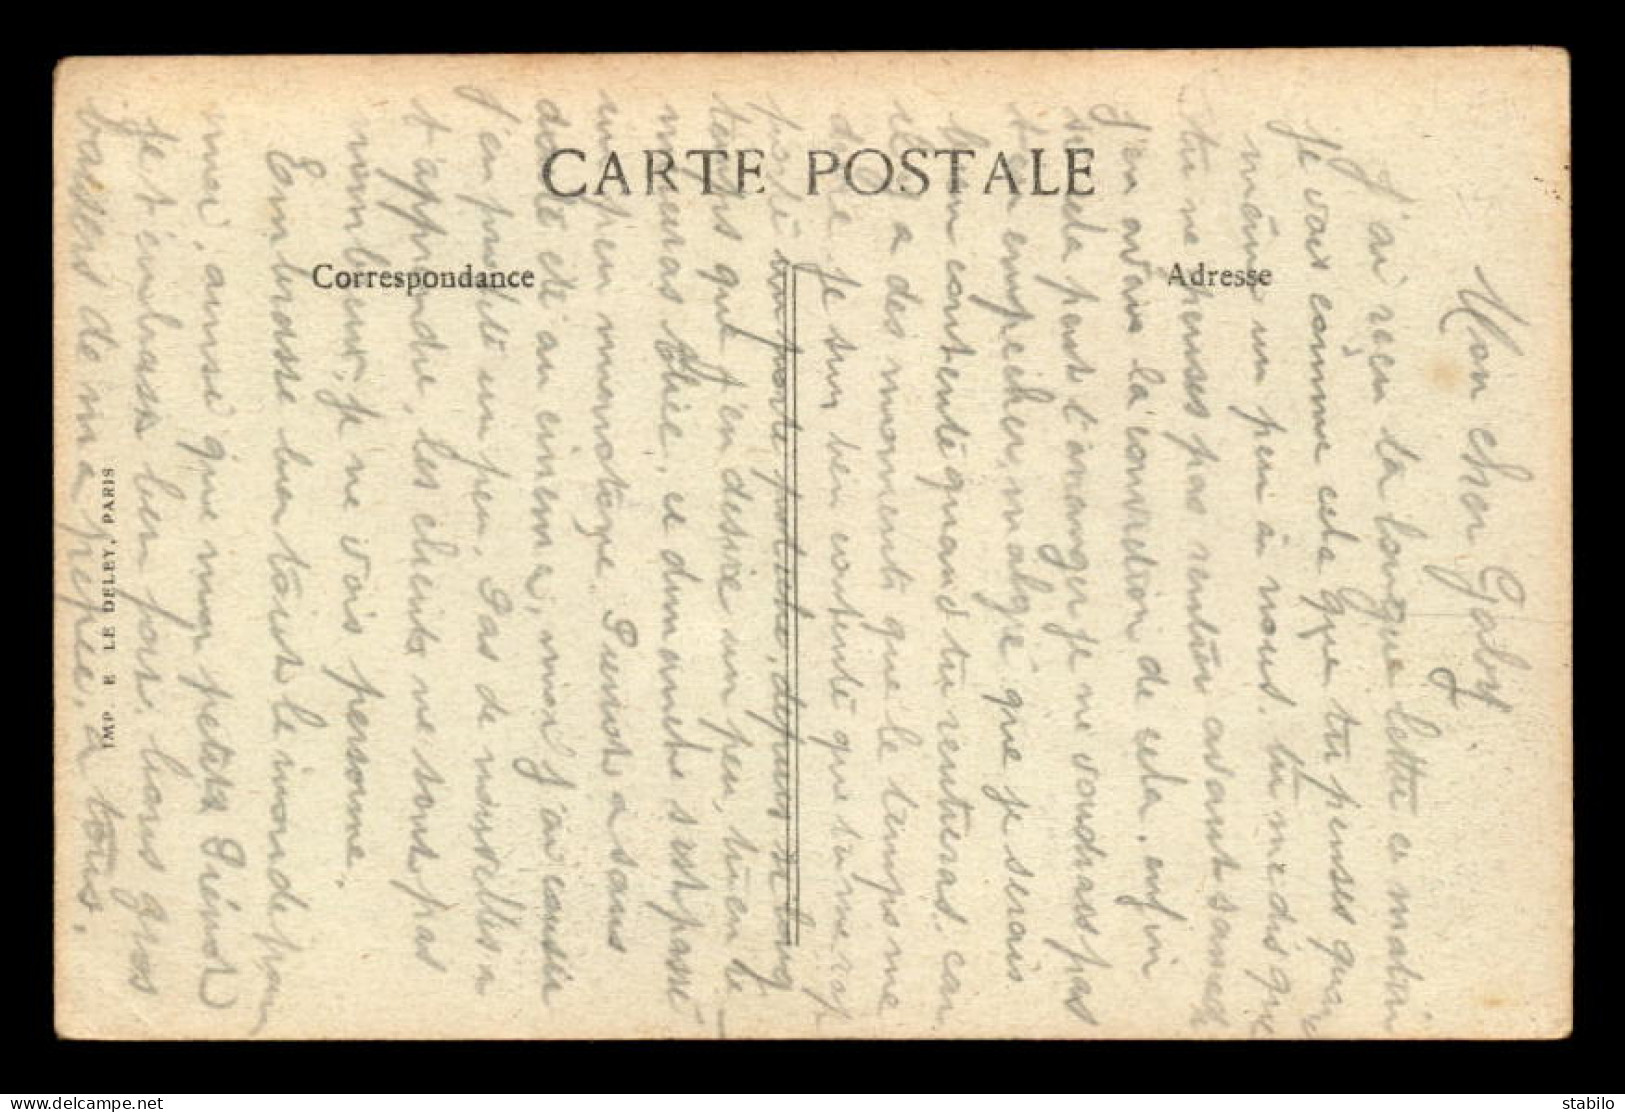 CARTE POSTALE
Correspondance
Adresse
IMP. E. LE DELEY, PARIS
Mon cher Gaby
J'ai reçu ta longue lettre ce matin
je vois comme cela que tu penses quand
même un peu à nous. tu me dis que
tu ne penses pas rentrer avant samedi
j'en avais la conviction de cela, enfin
si cela peut t'arranger je ne voudrais pas
t'en empêcher, malgré que je serais
bien contente quand tu rentreras. car
il y a des moments que le temps me
dure. Je suis bien contente que tu me rap
porte
depuis si long
temps que j'en desire un peu, tu en le
ce dimanche s'est passé
un peu monotone. Pierrot a sans
doute été au cinema, moi j'ai
j'en profité un peu. Pas de nouvelles a
t'apprendre, les clients ne sont pas
nombreux, je ne vois personne.
Embrasse bien tout le monde pour
moi, ainsi que mon petit Pierrot
Je t'embrasse bien fort. bons gros
baisers de ma pépée, a tous.
stabilo